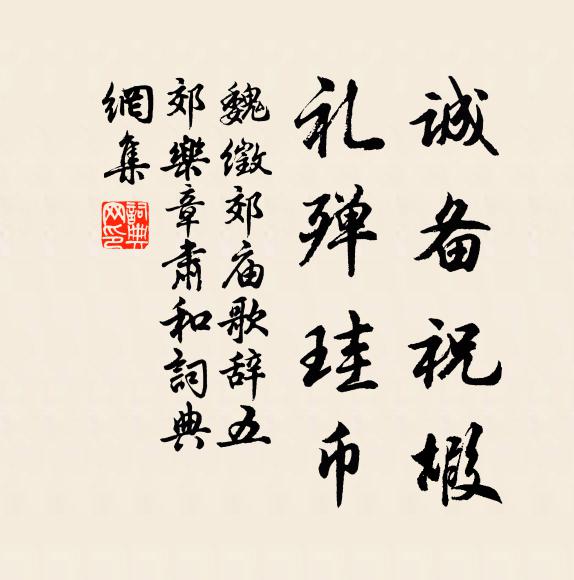 诚备祝嘏
礼殚珪币
魏徵郊庙歌辞五
郊樂章肃和詞典
網集
詞典
网印